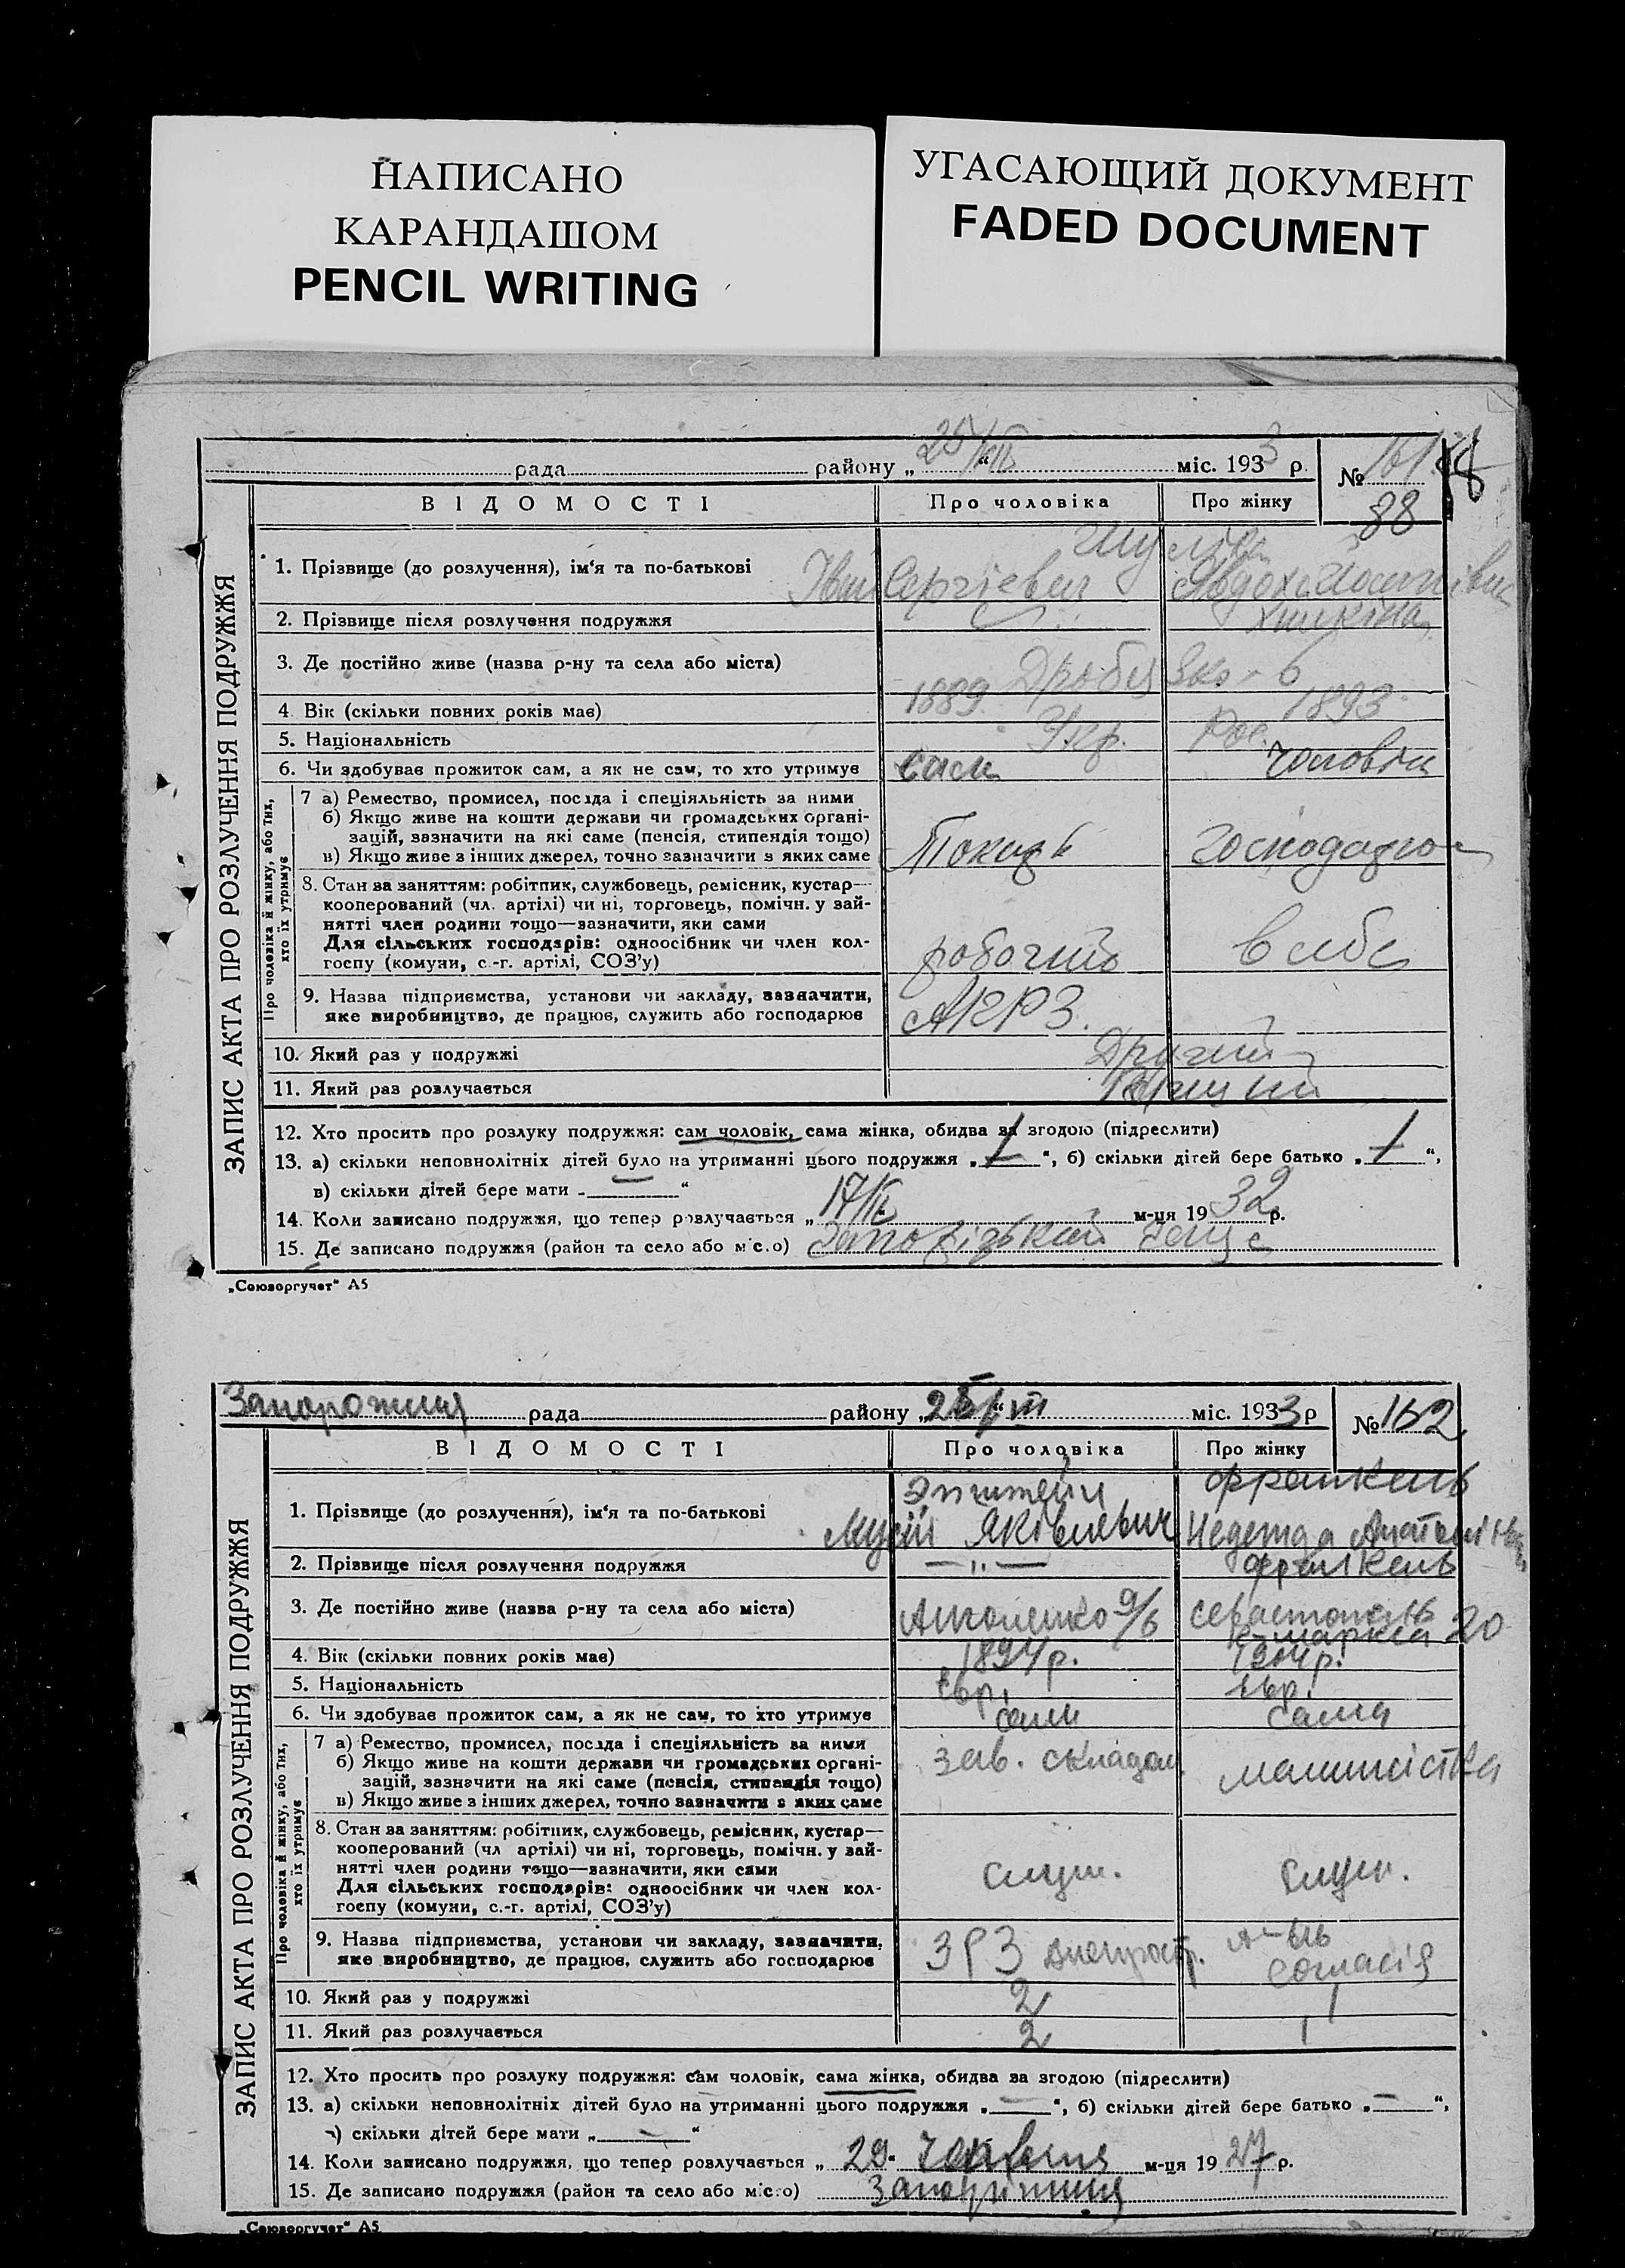 НАПИСАНО
КАРАНДАШОМ
PENCIL WRITING
УГАСАЮЩИЙ ДОКУМЕНТ
FADED DOCUMENT
ЗАПИС АКТА ПРО РОЗЛУЧЕННЯ ПОДРУЖЖЯ
рада района „25/III“ міс. 1933 р. № 161
88
ВІДОМОСТІ Про чоловіка Про жінку
1. Прізвище (до розлучення), ім'я та по-батькові Іван Сергієвич
2. Прізвище після розлучення подружжя
3. Де постійно живе (назва р-ну та села або міста)
4 Вік (скільки повних років має) 1889 1893
5. Національність Укр. Рос.
6. Чи здобував прожиток сам, а як не сам, то хто утримує сам чоловік
Про чоловіка й жінку, або тих, хто їх утримує
7 а) Ремество, промисел, посада і спеціяльність за ними
б) Якщо живе на кошти держави чи громадських органі-
зацій, зазначити на які саме (пенсія, стипендія тощо)
в) Якщо живе з інших джерел, точно зазначити з яких саме Токарь
8. Стан за заняттям: робітник, службовець, ремісник, кустар—
кооперований (чл. артілі) чи ні, торговець, помічн. у зай-
нятті член родини тощо—зазначити, яки сами
Для сільських господарів: одноосібник чи член кол-
госпу (комуни, с.-г. артілі, СОЗ'у) робочий
9. Назва підприємства, установи чи закладу, зазначити,
яке виробництво, де працює, служить або господарює
10. Який раз у подружжі Другий
11. Який раз розлучається
12. Хто просить про розлуку подружжя: сам чоловік, сама жінка, обидва за згодою (підреслити)
13. а) скільки неповнолітніх дітей було на утриманні цього подружжя „—“, б) скільки дітей бере батько „—“,
в) скільки дітей бере мати „ “
14. Коли записано подружжя, що тепер розлучається „17/ м-ця 1932 р.
15. Де записано подружжя (район та село або місто) Запорізький
„Союзоргучет“ А5
ЗАПИС АКТА ПРО РОЗЛУЧЕННЯ ПОДРУЖЖЯ
Запорожжя рада району „25/III“ міс. 1933 р № 162
ВІДОМОСТІ Про чоловіка Про жінку
Эпштейн Франкель
1. Прізвище (до розлучення), ім'я та по-батькові Мусій Яківлевич
2. Прізвище після розлучення подружжя — „ — Франкель
3. Де постійно живе (назва р-ну та села або міста) 9/6 Севастополь
К-Маркса 20
4. Вік (скільки повних років має) 1894 р. 1904 р.
5. Національність Євр. Євр.
6. Чи здобував прожиток сам, а як не сам, то хто утримує сам сама
Про чоловіка й жінку, або тих, хто їх утримує
7 а) Ремество, промисел, посада і спеціяльність за ними
б) Якщо живе на кошти держави чи громадських органі-
зацій, зазначити на які саме (пенсія, стипендія тощо)
в) Якщо живе з інших джерел, точно зазначити з яких саме зав. складом машиністка
8. Стан за заняттям: робітник, службовець, ремісник, кустар—
кооперований (чл артілі) чи ні, торговець, помічн. у зай-
нятті член родини тощо—зазначити, яки сами
Для сільських господарів: одноосібник чи член кол-
госпу (комуни, с.-г. артілі, СОЗ'у) служ. служ.
9. Назва підприємства, установи чи закладу, зазначити,
яке виробництво, де працює, служить або господарює ЗРЗ Днепростр.
10. Який раз у подружжі 2 1
11. Який раз розлучається 2 1
12. Хто просить про розлуку подружжя: сам чоловік, сама жінка, обидва за згодою (підреслити)
13. а) скільки неповнолітніх дітей було на утриманні цього подружжя „—“, б) скільки дітей бере батько „—“,
в) скільки дітей бере мати „—“
14. Коли записано подружжя, що тепер розлучається „29“ м-ця 1927 р.
15. Де записано подружжя (район та село або місто) Запоріжжя
„Союзоргучет“ А5